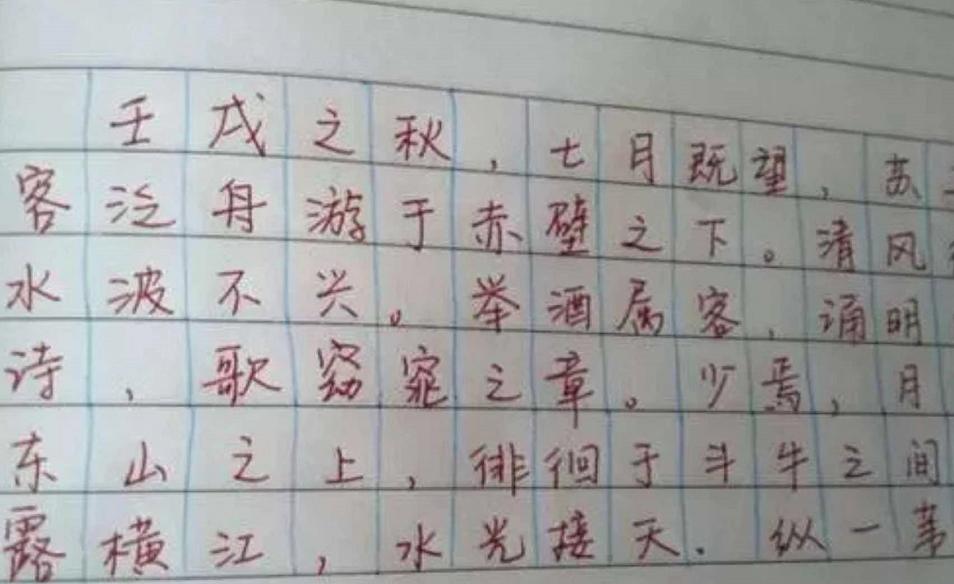 壬戌之秋，七月既望，苏
客泛舟游于赤壁之下。清风
水波不兴。举酒属客，诵明
诗，歌窈窕之章。少焉，月
东山之上，徘徊于斗牛之间
露横江，水光接天.纵一苇